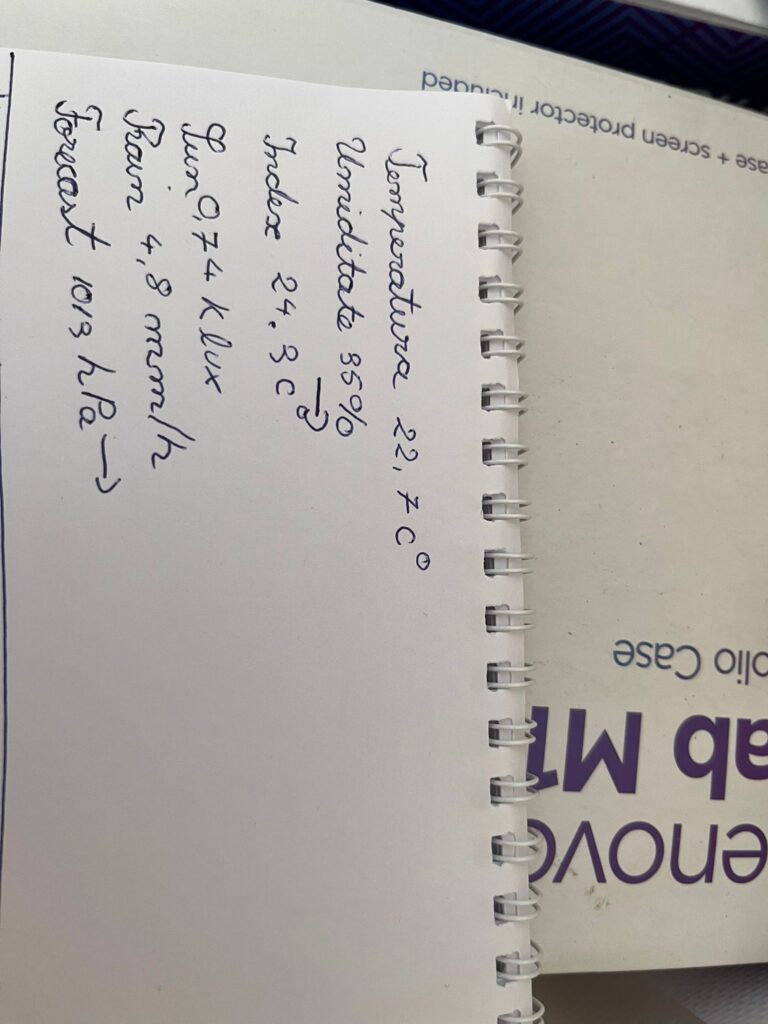 Temperatura 22,7 C°
Umiditate 35% →
Index 24.3 C°
Sun 0,74 klux
Rain 4,8 mm/h
Forecast 1013 hPa →
ase + screen protector included
olio Case
ab M1
enovo